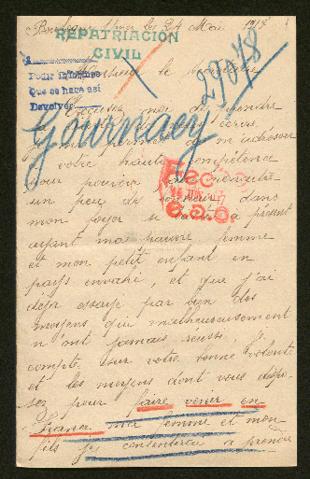 Bordeaux le 24 Mai 1918
REPATRIACIÓN
CIVIL
Monsieur le
Pedir informes
Que se haga así
Devolver
27078
Excusez moi de prendre
Gournay
permet de m'adresser
votre haute compétence
pour pouvoir
un peu de bonheur dans
mon foyer à présent
ayant ma pauvre femme
et mon petit enfant en
pays envahi, et que j'ai
déjà essayé par bien des
moyens qui malheureusement
n'ont jamais réussi. Je
compte sur votre bonne volonté
et les moyens dont vous dispo-
sez pour faire venir en
France ma femme et mon
fils je contenterai à prendre